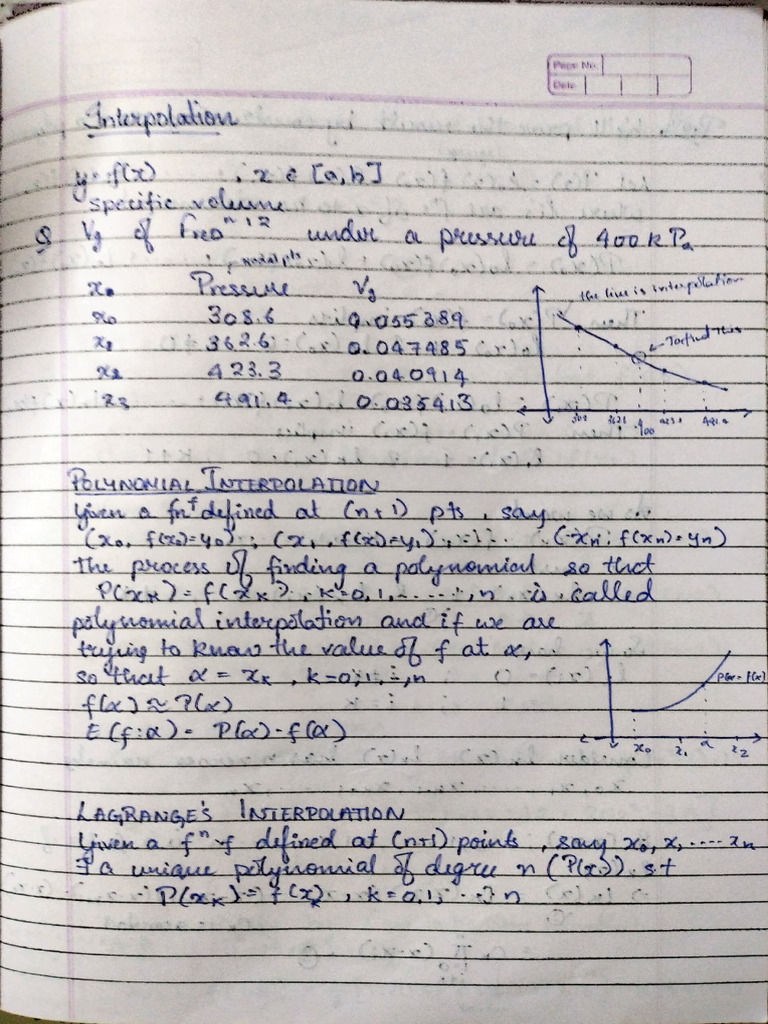 Page No.
Date
Interpolation
y = f(x) , x ∈ [a,b]
specific volume
Q Vg of Freoⁿ 12 under a pressure of 400 kPa
nodal pts
x. Pressure Vg
x0 308.6 0.055389
x1 362.6 0.047485
x2 423.3 0.040914
x3 491.4 0.035413
the line is interpolation
To find this
400
POLYNOMIAL INTERPOLATION
Given a fnⁿ f defined at (n+1) pts , say
(x0, f(x0)=y0) ; (x1, f(x1)=y1) , (xn, f(xn)=yn)
The process of finding a polynomial so that
P(xk) = f(xk) , k=0,1,......,n is called
polynomial interpolation and if we are
trying to know the value of f at α,
so that α = xk , k=0,1,..,n
f(α) ≈ P(α)
E(f:α) = P(α) - f(α)
P(x) = f(x)
x0 x1 α x2
LAGRANGE'S INTERPOLATION
Given a fⁿ f defined at (n+1) points , say x0, x, .... xn
∃ a unique polynomial of degree n (P(x)) s.t
P(xk) = f(xk) , k=0,1, ..., n